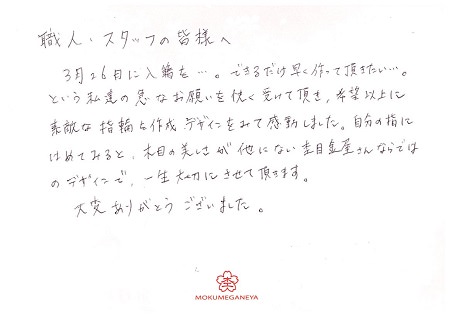 職人・スタッフの皆様へ
3月26日に入籍を…。できるだけ早く作って頂きたい…。
という私達の急なお願いを快く受けて頂き、希望以上に
素敵な指輪を作成、デザインをみて感動しました。自分の指に
はめてみると、木目の美しさが他にない杢目金屋さんならでは
のデザインで、一生大切にさせて頂きます。
大変ありがとうございました。
MOKUMEGANEYA